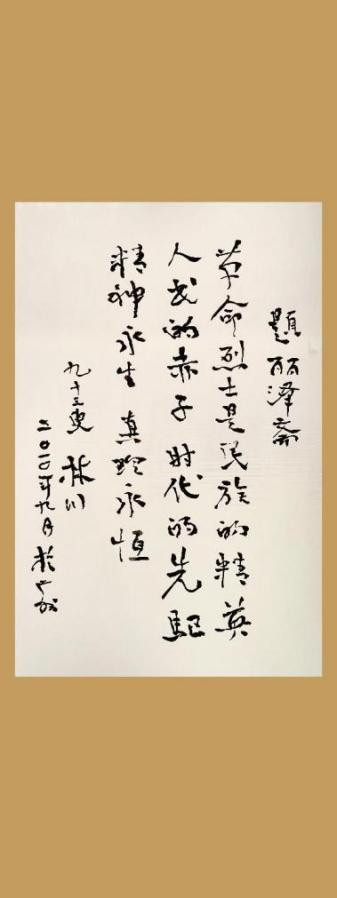 题丽泽斋
革命烈士是民族的精英
人民的赤子 时代的先驱
精神永生 真理永恒
九十三叟 林川
二〇一〇年九月 於